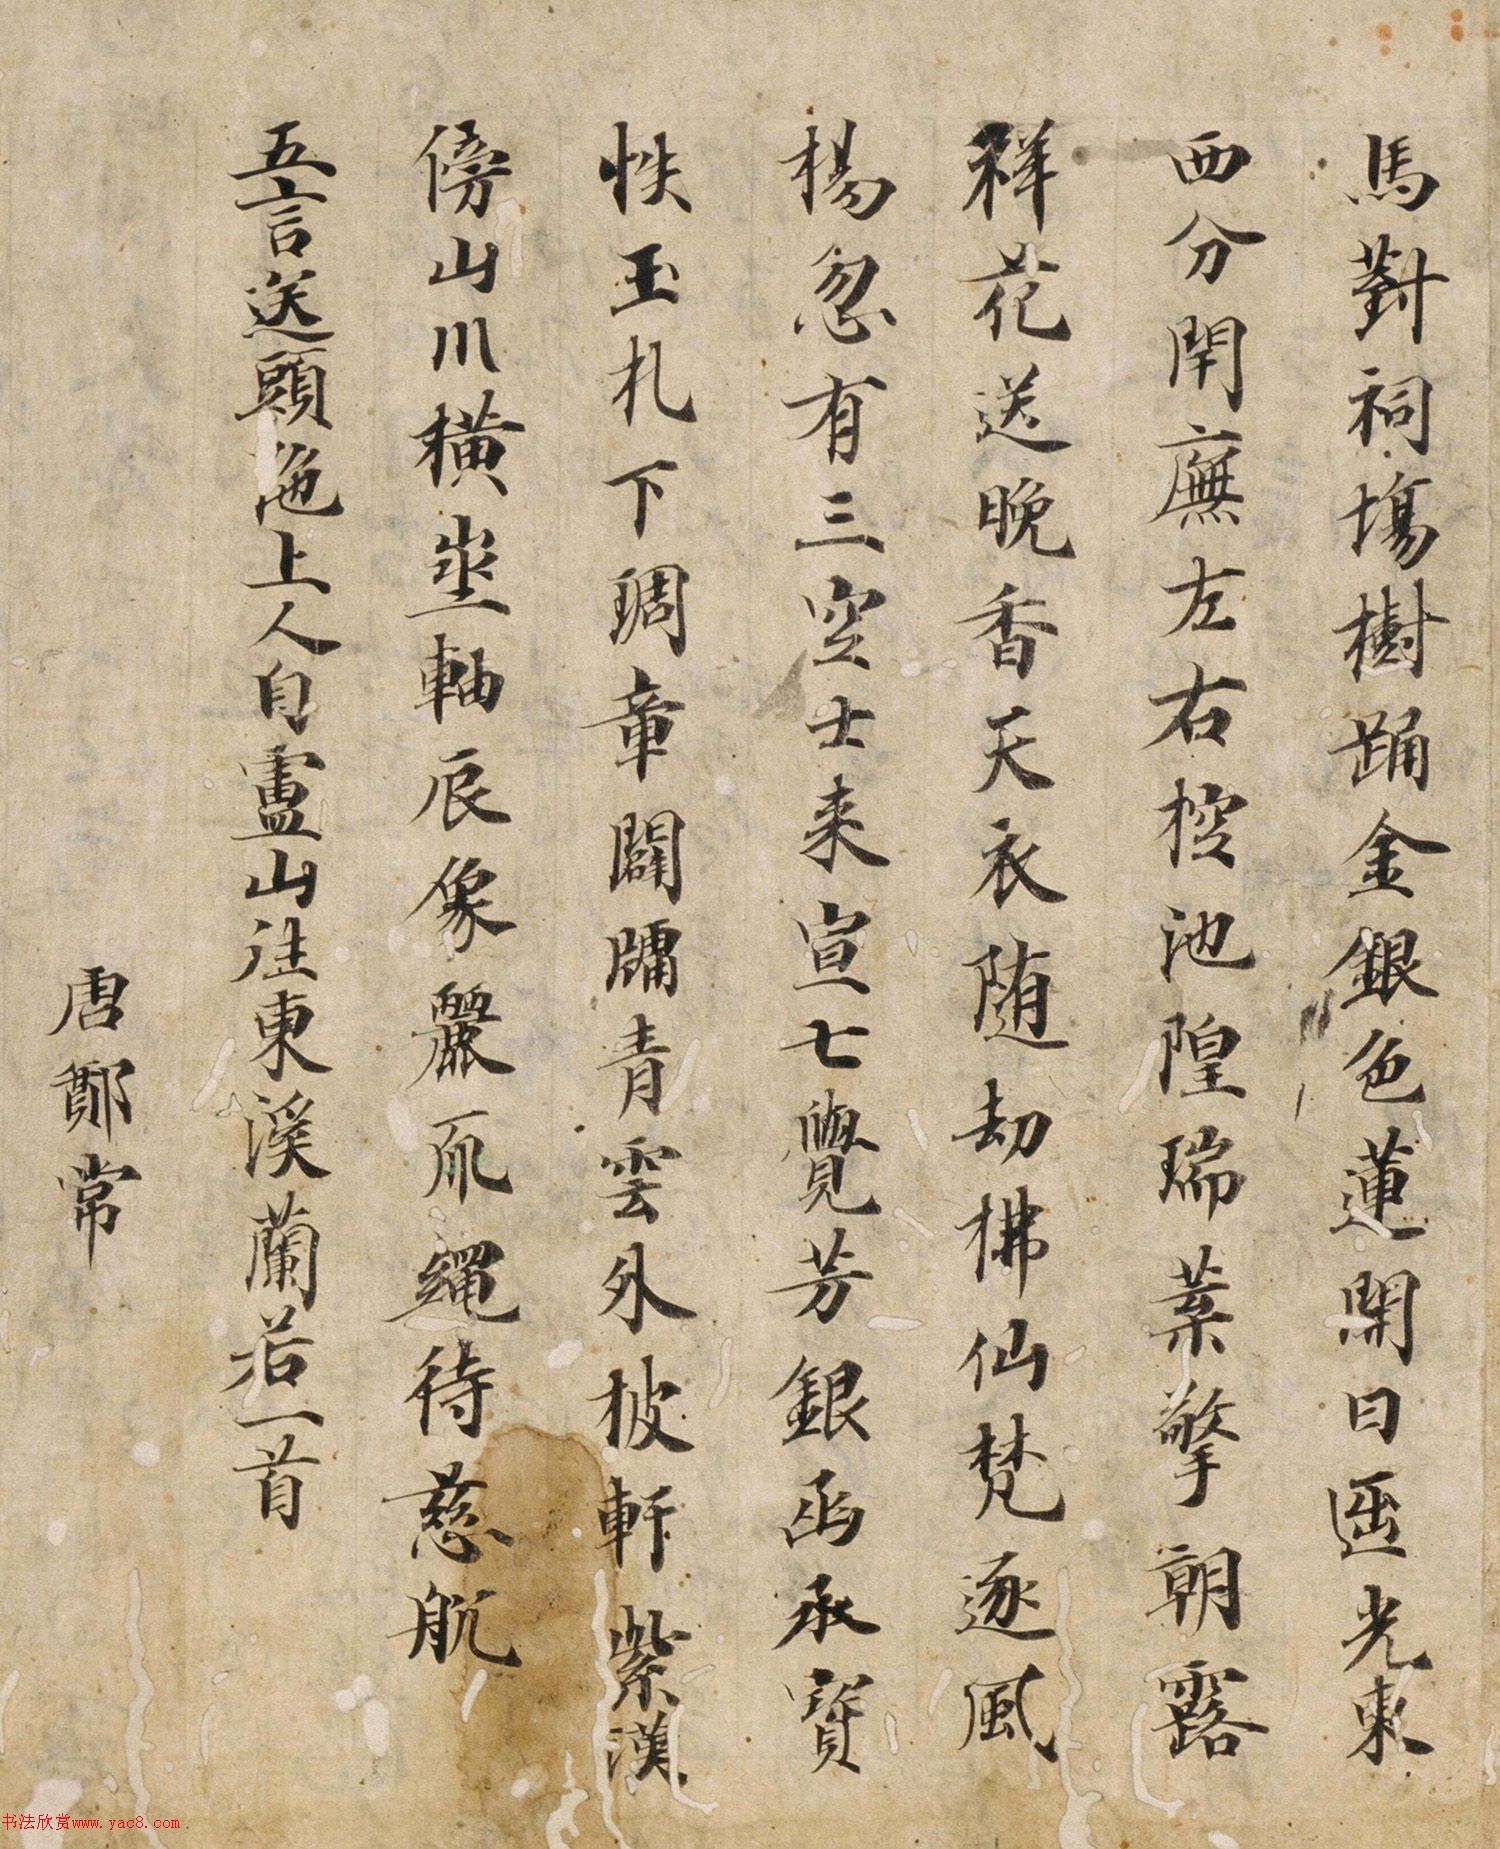 馬對祠塲樹踊金銀色蓮開日匝光東
西分閈廡左右控池隍瑞葉擎朝露
祥花送晚香天衣随劫拂仙梵逐風
楊忽有三空士来宣七覺芳銀函承寶
帙玉札下琱章闢牖青雲外披軒紫漢
傍山川横坐軸辰像麗爪繩待慈航
五言送頭陁上人自盧山往東溪蘭若一首
唐鄭常
书法欣赏www.yac8.com